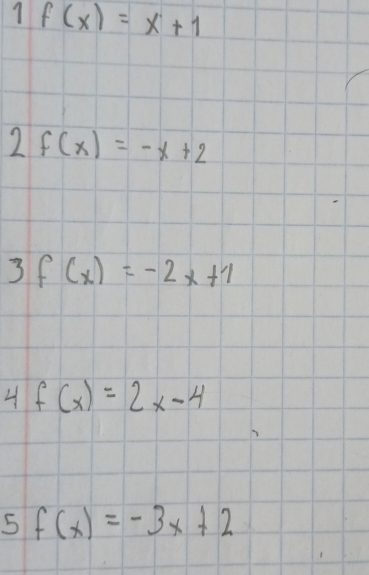 1 f(x) = x + 1
2 f(x) = -x + 2
3 f(x) = -2x + 1
4 f(x) = 2x - 4
5 f(x) = -3x + 2